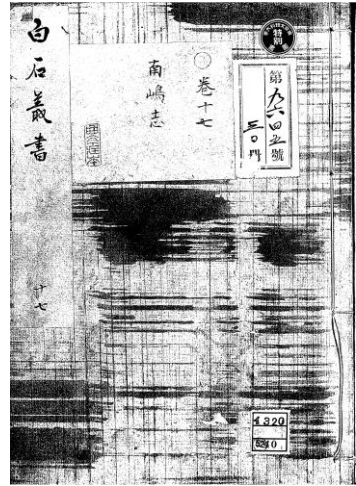 特別
第九六四五號
三〇門
〇卷十七
南嶋志
白石叢書
十七
1320
10